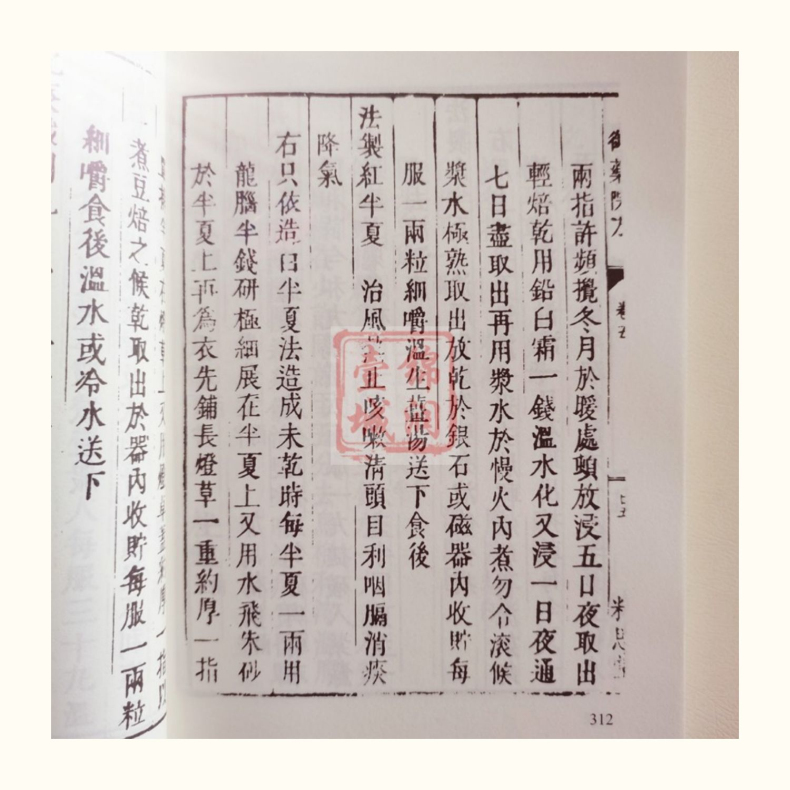 御藥院方 卷五
兩指許頻攪冬月於暖處頓放浸五日夜取出
輕焙乾用鉛白霜一錢溫水化又浸一日夜通
七日盡取出再用漿水於慢火內煮勿令滚候
漿水極熟取出放乾於銀石或磁器內收貯每
服一兩粒細嚼溫生薑湯送下食後
法製紅半夏 治風止咳嗽清頭目利咽膈消痰
降氣
右只依造白半夏法造成未乾時每半夏一兩用
龍腦半錢研極細展在半夏上又用水飛朱砂
於半夏上再為衣先鋪長燈草一重約厚一指
煮豆焙之候乾取出於器內收貯每服一兩粒
細嚼食後溫水或冷水送下
312